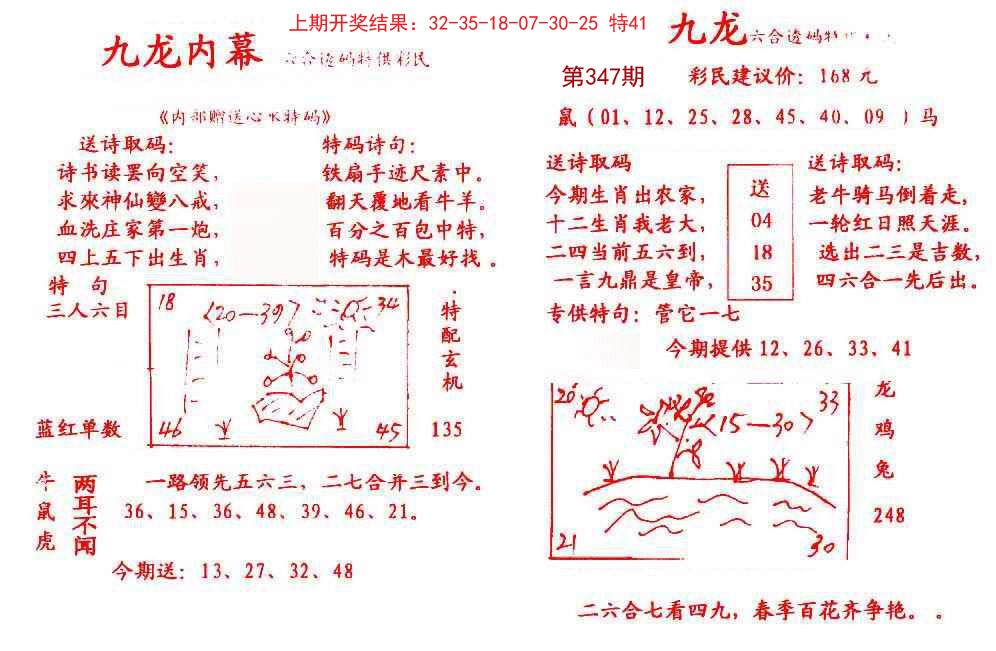 上期开奖结果：32-35-18-07-30-25 特41
九龙内幕
六合透码特供彩民
《内部赠送心水特码》
送诗取码：
诗书读罢向空笑，
求來神仙變八戒，
血洗庄家第一炮，
四上五下出生肖，
特码诗句：
铁扇手迹尺素中。
翻天覆地看牛羊。
百分之百包中特，
特码是木最好找。
特 句
三人六目
蓝红单数
18
〈20—39〉
34
46
45
特配玄机
135
牛鼠虎
两耳不闻
一路领先五六三，二七合并三到今。
36、15、36、48、39、46、21。
今期送：13、27、32、48
九龙
六合透码特
第347期
彩民建议价：168元
鼠（01、12、25、28、45、40、09 ）马
送诗取码
今期生肖出农家，
十二生肖我老大，
二四当前五六到，
一言九鼎是皇帝，
送
04
18
35
送诗取码：
老牛骑马倒着走，
一轮红日照天涯。
选出二三是吉数，
四六合一先后出。
专供特句：管它一七
今期提供12、26、33、41
20
〈15—30〉
33
21
30
龙
鸡
兔
248
二六合七看四九，春季百花齐争艳。 。